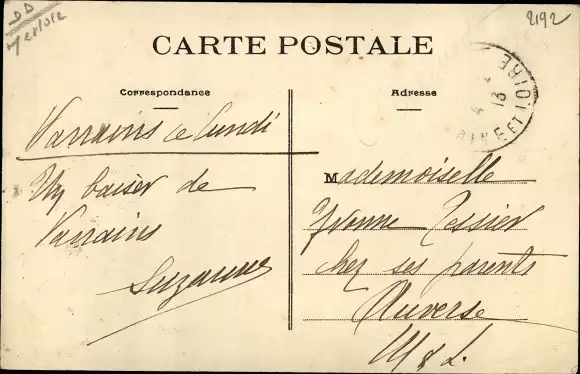 DD
2192
CARTE POSTALE
Correspondance
Adresse
4
13
ET LOIRE
Varrains ce lundi
Un baiser de
Varrains
Suzanne
Mademoiselle
Yvonne Tessier
chez ses parents
Auverse
M & L.